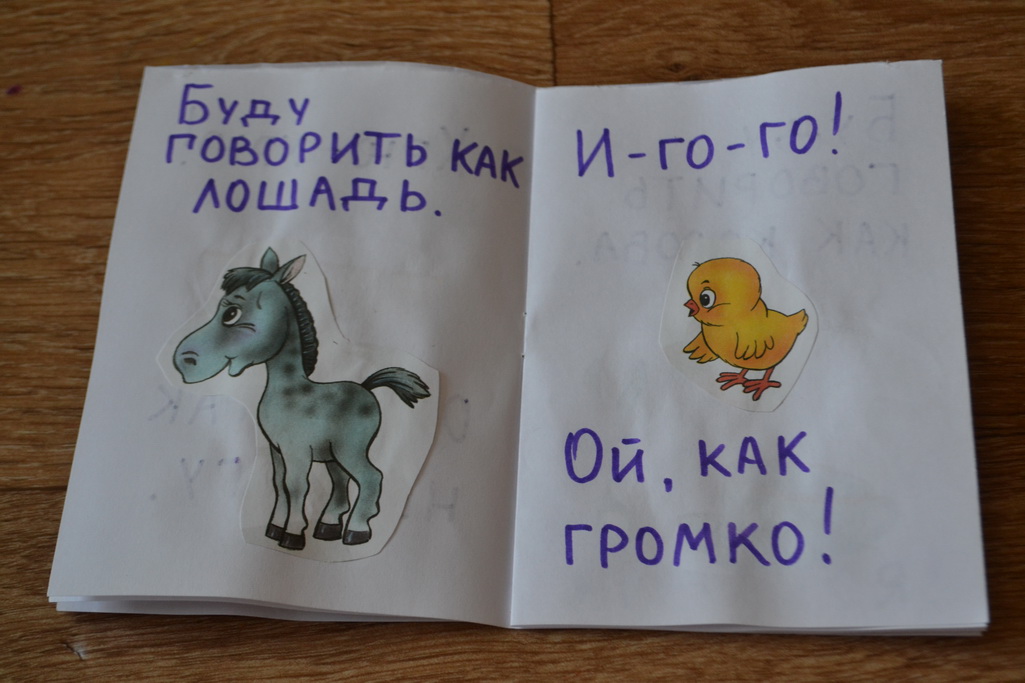 Буду
говорить как
лошадь.
И-го-го!
Ой, как
громко!